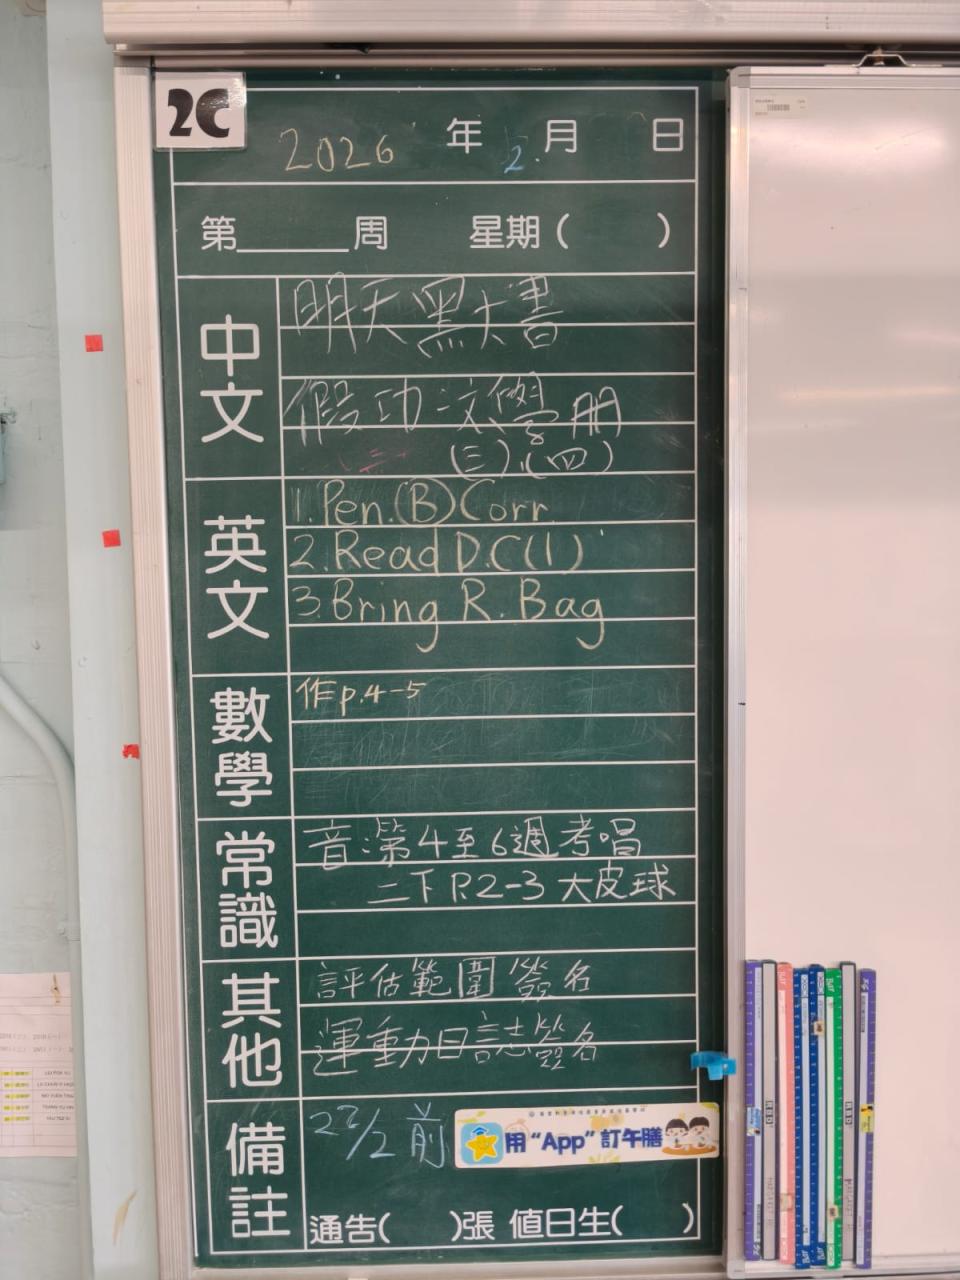 2C
2026 年 2. 月 日
第 周 星期 ( )
中文
明天黑大書
假功課
學冊
(三)、(四)
英文
1. Pen. (B) Corr.
2. Read D.C (1)
3. Bring R. Bag
數學
作 p.4-5
常識
音:第4至6週考唱
二下 P.2-3 大皮球
其他
評估範圍簽名
運動日誌簽名
備註
27/2 前
用 “App” 訂午膳
通告( )張 值日生( )